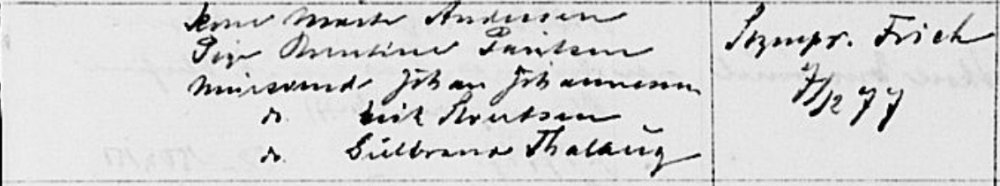 Kone Marte Andersen
Pige Martine Paulsen
Murswend Johan Johannesen
do. Erik Knutsen
do. Gulbrand Thalaug
Sognepr. Frich
7/12 77